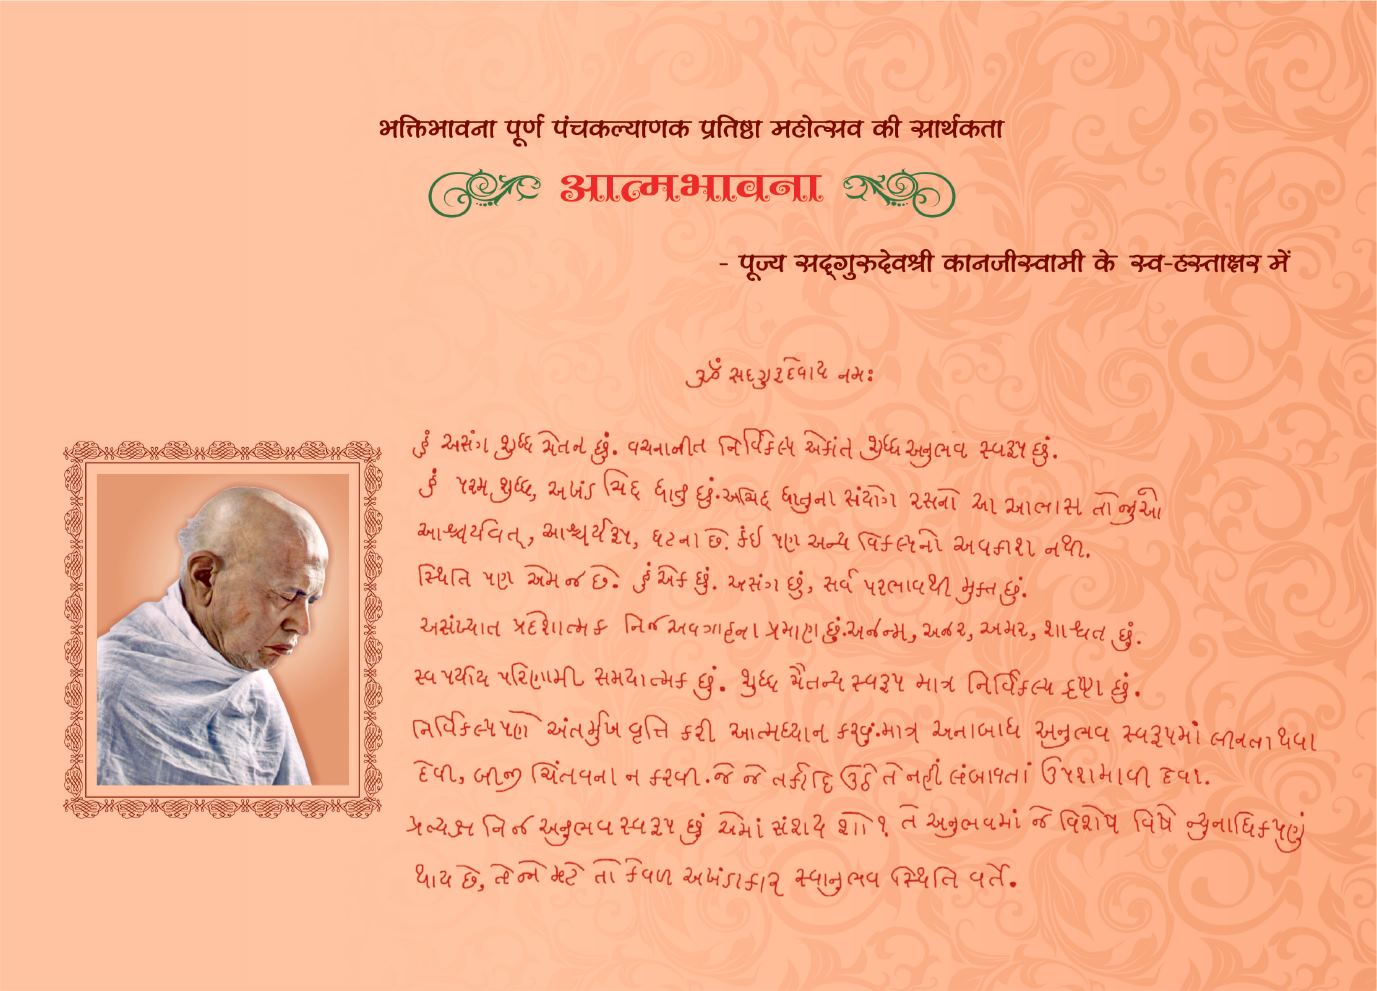 भक्तिभावना पूर्ण पंचकल्याणक प्रतिष्ठा महोत्सव की सार्थकता
आत्मभावना
- पूज्य सद्‌गुरुदेवश्री कानजीस्वामी के स्व-हस्ताक्षर में
ૐ સદગુરુદેવાય નમઃ
હું અસંગ શુદ્ધ ચેતન છું. વચનાતીત નિર્વિકલ્પ એકાંત શુદ્ધ અનુભવ સ્વરૂપ છું.
હું પરમ શુદ્ધ, અખંડ ચિદ્ ધાતુ છું. અચિદ્ ધાતુના સંયોગ રસનો આ આભાસ તો જુઓ
આશ્ચર્યવત્, આશ્ચર્યરૂપ, ઘટના છે. કંઈ પણ અન્ય વિકલ્પનો અવકાશ નથી.
સ્થિતિ પણ એમ જ છે. હું એક છું. અસંગ છું, સર્વ પરભાવથી મુક્ત છું.
અસંખ્યાત પ્રદેશાત્મક નિજ અવગાહના પ્રમાણ છું. અજન્મ, અજર, અમર, શાશ્વત છું.
સ્વ પર્યાય પરિણામી સમયાત્મક છું. શુદ્ધ ચૈતન્ય સ્વરૂપ માત્ર નિર્વિકલ્પ દ્રષ્ટા છું.
નિર્વિકલ્પપણે અંતર્મુખ વૃત્તિ કરી આત્મધ્યાન કરવું. માત્ર અનાબાધ અનુભવ સ્વરૂપમાં લીનતા થવા
દેવી, બીજી ચિંતવના ન કરવી. જે જે તર્કાદિ ઉઠે તે નહીં લંબાવતાં ઉપશમાવી દેવા.
પ્રત્યક્ષ નિજ અનુભવ સ્વરૂપ છું એમાં સંશય શો? તે અનુભવમાં જે વિશેષ વિષે ન્યુનાધિકપણું
થાય છે, તે મટે તો કેવળ અખંડાકાર સ્વાનુભવ સ્થિતિ વર્તે.